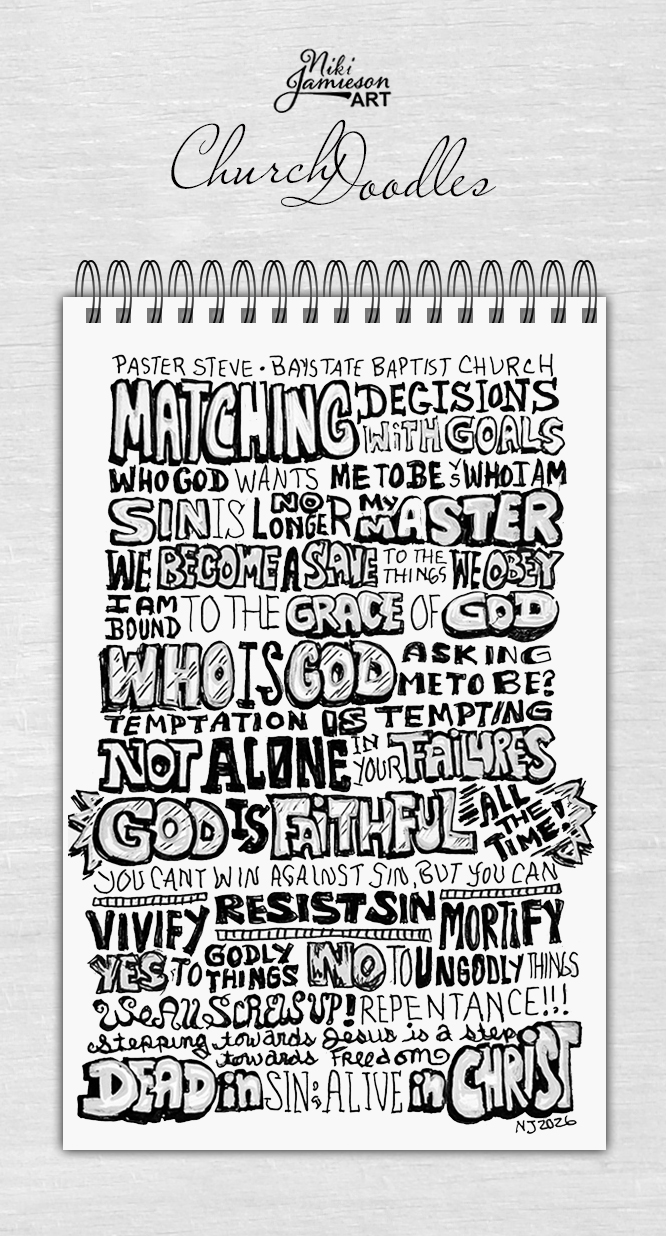 Niki
Jamieson
ART
Church Doodles
PASTER STEVE • BAYSTATE BAPTIST CHURCH
MATCHING DECISIONS WITH GOALS
WHO GOD WANTS ME TO BE VS WHO I AM
SIN IS NO LONGER MY MASTER
WE BECOME A SLAVE TO THE THINGS WE OBEY
I AM BOUND TO THE GRACE OF GOD
WHO IS GOD ASKING ME TO BE?
TEMPTATION IS TEMPTING
NOT ALONE IN YOUR FAILURES
GOD IS FAITHFUL ALL THE TIME!
YOU CANT WIN AGAINST SIN, BUT YOU CAN
VIVIFY RESIST SIN MORTIFY
YES TO GODLY THINGS NO TO UNGODLY THINGS
WE ALL SCREWS UP! REPENTANCE!!!
stepping towards Jesus is a step
towards Freedom
DEAD in SIN & ALIVE in CHRIST
NJ2026